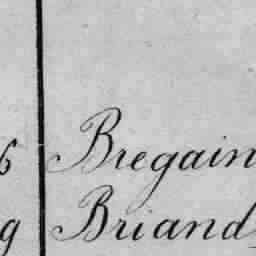 6 Bregain
9 Briand